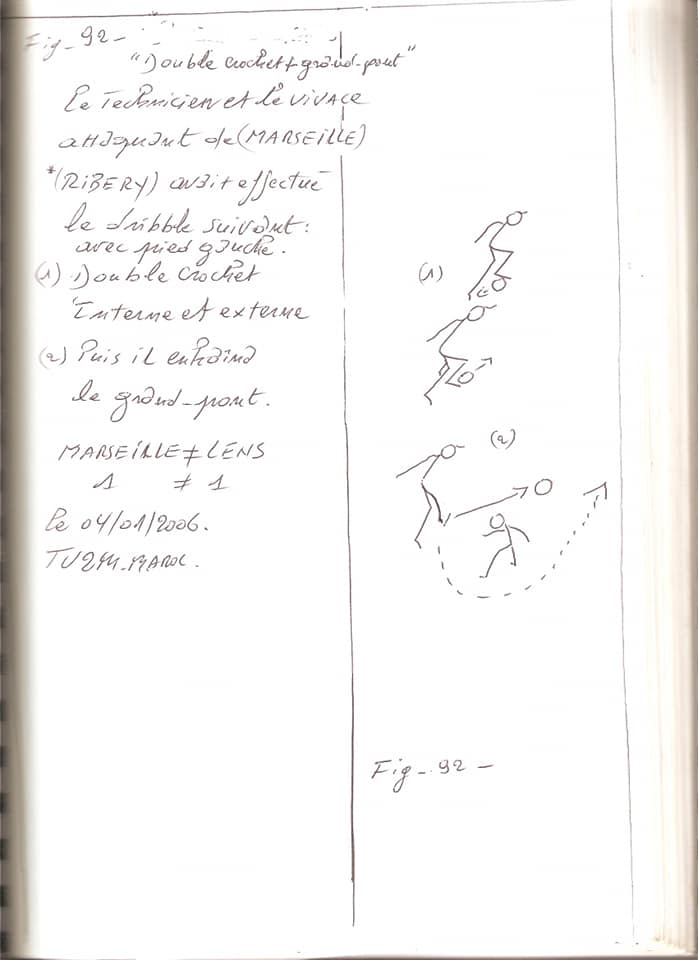 Fig_92_
"Double crochet+grand-pont"
Le Technicien et le vivace
attaquant de (MARSEILLE)
*(RIBERY) avait effectué
le dribble suivant:
avec pied gauche.
(1) Double crochet
Interne et externe
(2) Puis il entraina
le grand-pont.
MARSEILLE ≠ LENS
1 ≠ 1
Le 04/01/2006.
TV2M.MAROC.
(1)
(2)
Fig_92_